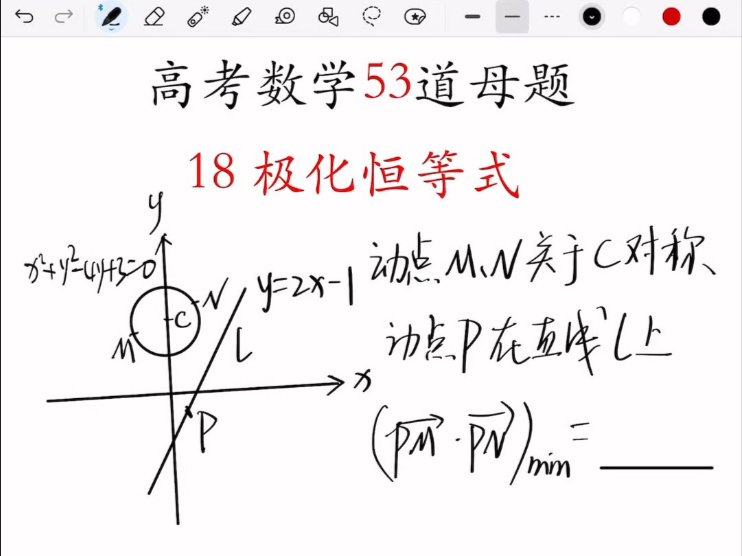 高考数学53道母题
18 极化恒等式
y
x²+y²-4y+3=0
N
y=2x-1
动点M、N关于C对称、
C
M
L
动点P在直线L上
x
P
(PM·PN)min=